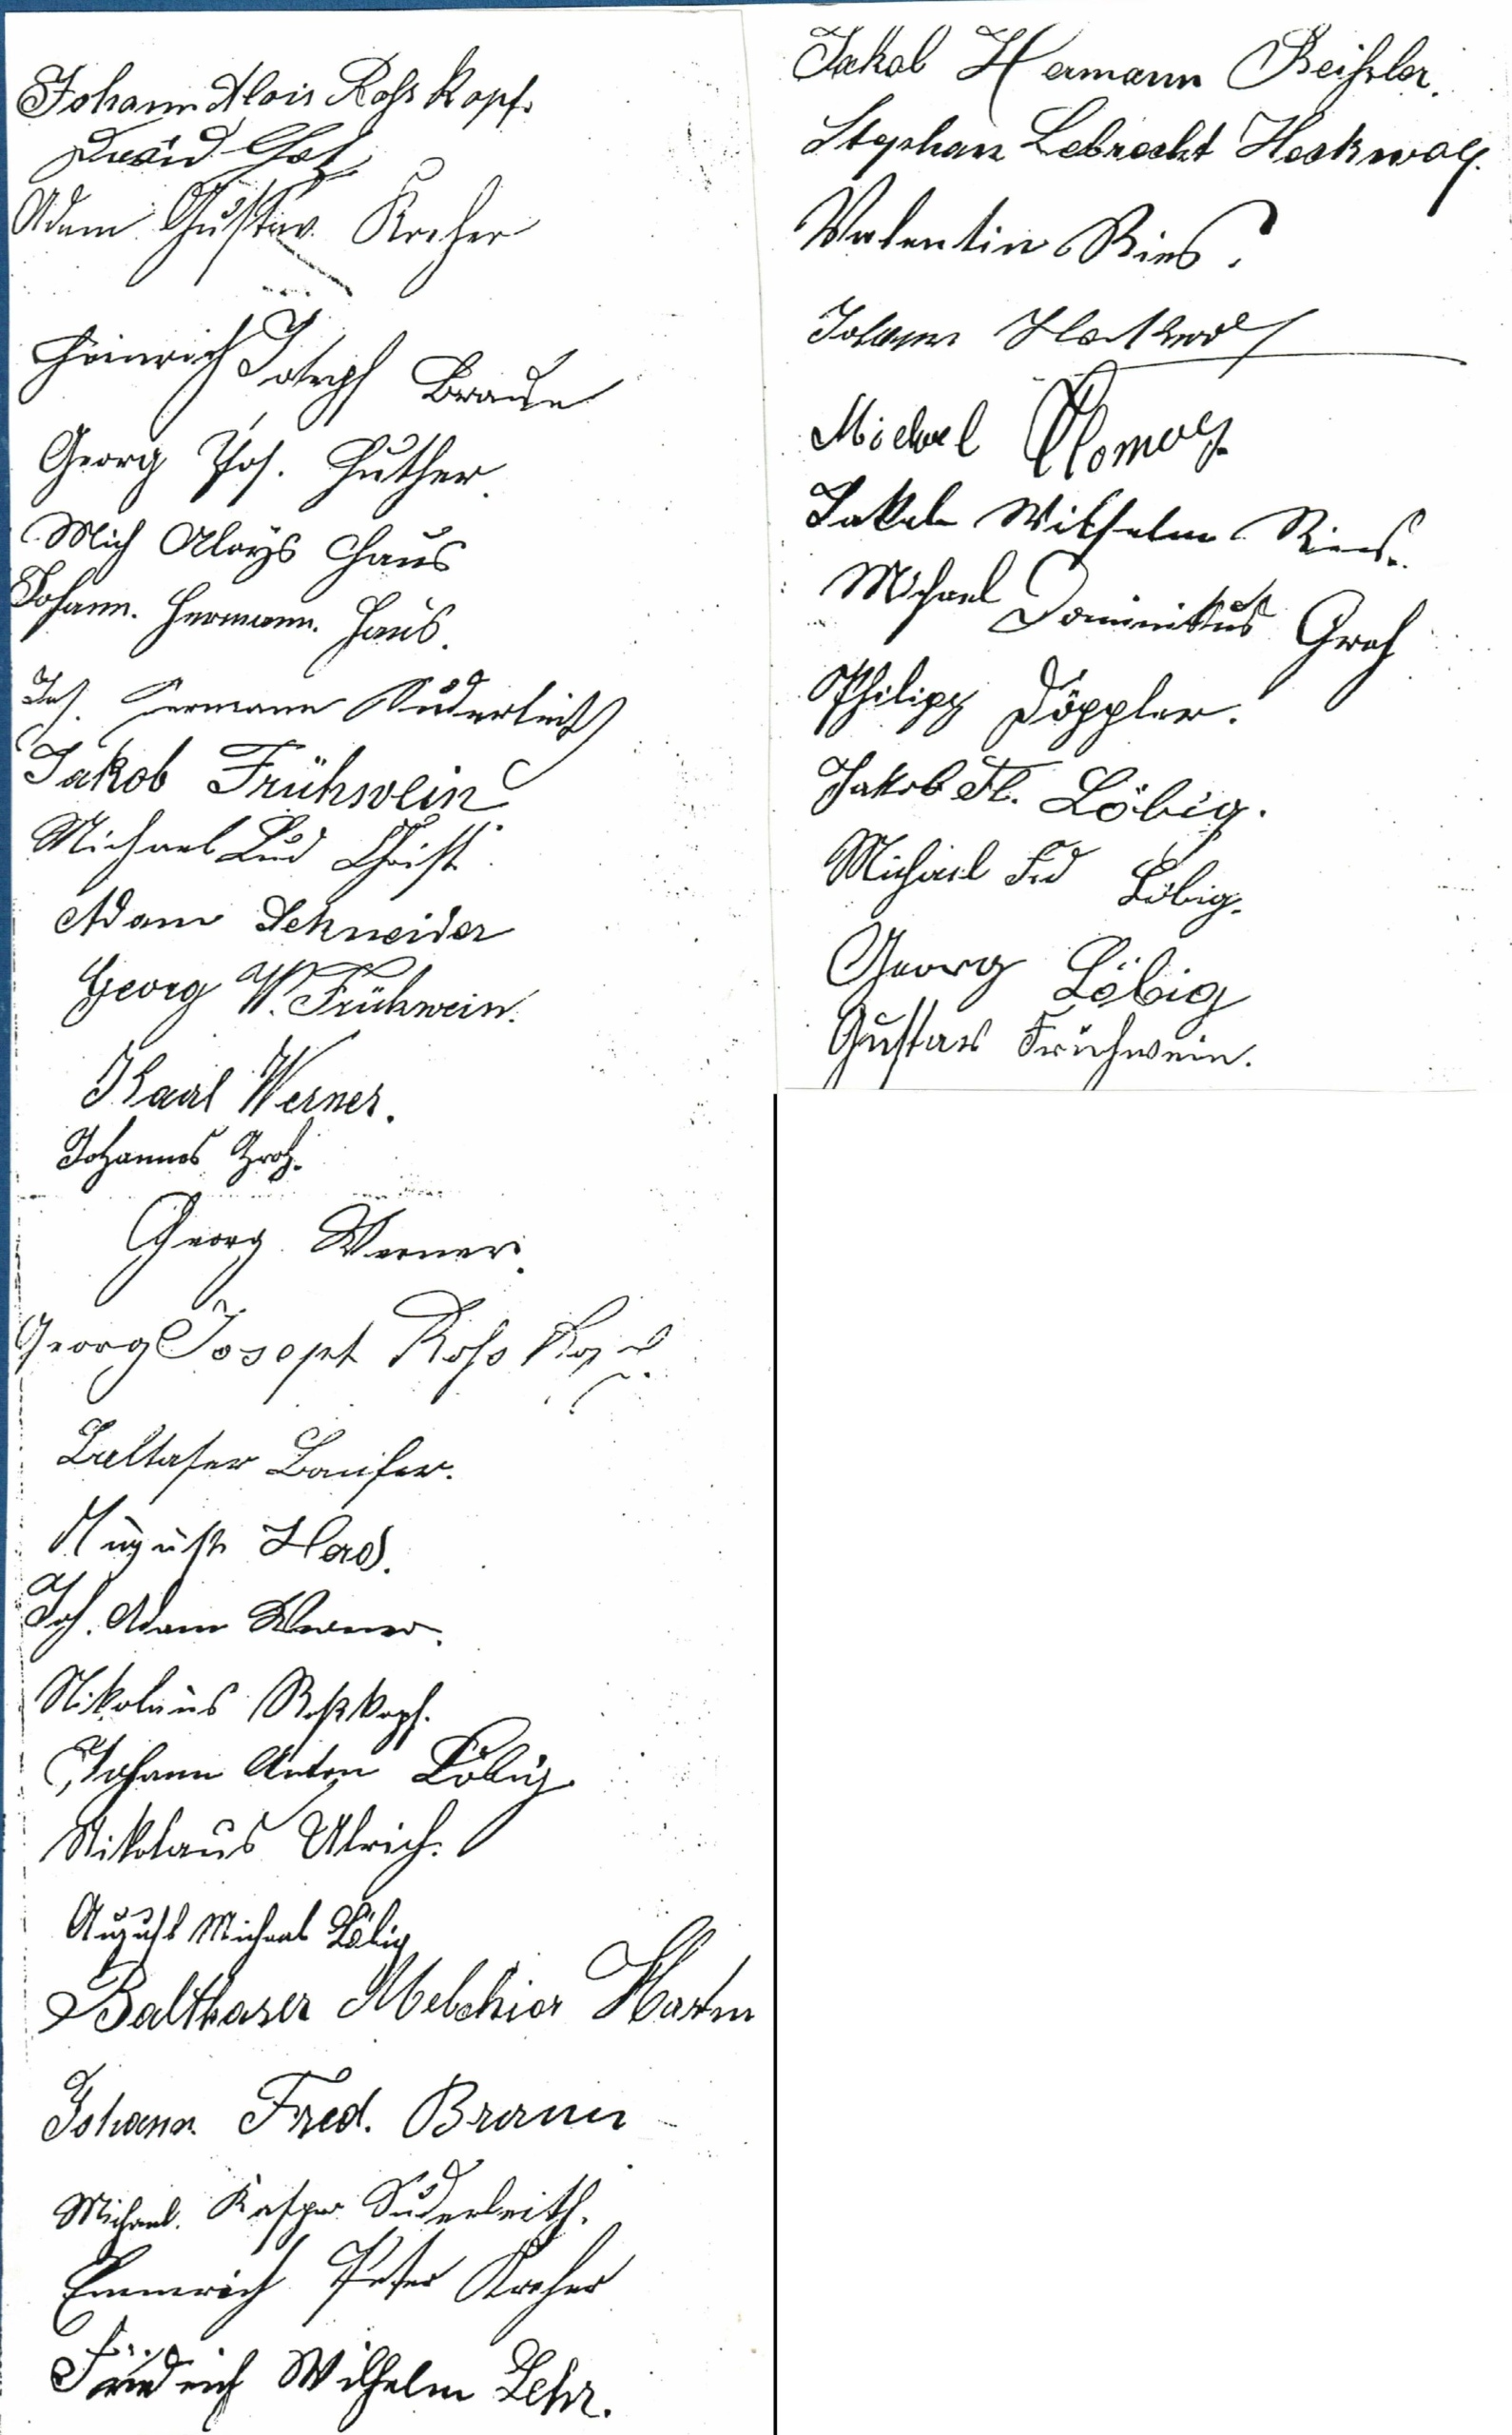 Johann Alois Rosskopf.
David
Adam Gustav Krcher
Heinrich Joseph Braun
Georg Jos. Huther.
Mich Aloys Haus
Johann. Hermann. Haus.
Joh. Hermann Suderleith
Jakob Frühwein
Michael Lud Christ.
Adam Schneider
Georg W. Frühwein.
Karl Werner.
Johannes Groh.
Georg Werner.
Georg Joseph Ross Kopf.
August
Joh. Adam Werner.
Nikolaus Roßkopf.
Johann Anton Löbig.
Nikolaus Ulrich.
August Michael Löbig
Balthaser Melchior
Johann Fred. Braun
Michael. Kaspar Suderleith.
Emmerich Peter Krcher
Friedrich Wilhelm Lehr.
Jakob Hermann Beißler.
Stephan Lebrecht Heckwolf.
Valentin Ries.
Johann Heckwolf
Michael
Jakob Wilhelm Ries.
Michael Dominikus Groh
Philipp Döppler.
Jakob Fl. Löbig.
Michael Frd Löbig.
Georg Löbig
Gustav Frühwein.